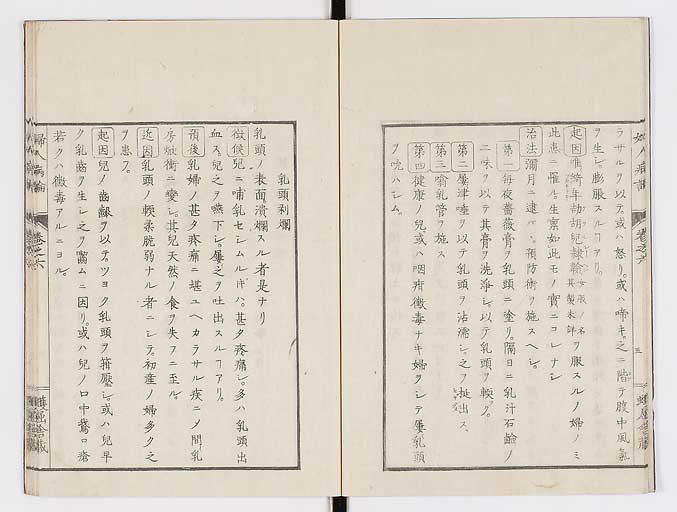 ラサルヲ以テ。或ハ怒リ。或ハ啼キ。之ニ階テ腹中風氣
ヲ生シ膨脹スルヿアリ。
起因 唯齊年
此患ニ罹ル。生禀如此モノ實ニコレナシ
治法 彌月ニ逮バヽ預防術ヲ施スヘシ。
第一 每夜薔薇膏ヲ乳頭ニ塗リ。隔日ニ乳汁石鹼ノ
二味ヲ以テ其膏ヲ洗淨シ以テ乳頭ヲ輭ク。
第二 屢津唾ヲ以テ乳頭ヲ沾濡シ之ヲ挺出ス。
第三 吸乳管ヲ施ス
第四 健康ノ兒或ハ咽疳黴毒ナキ婦ヲシテ屢乳頭
ヲ吮ハシム。
乳頭剥爛
乳頭ノ表面潰爛スル者是ナリ
徴候 兒ニ哺乳セシムルキハ。甚タ疼痛シ。多ハ乳頭出
血ス。兒之ヲ嚥下シ。屢之ヲ吐出スルヿアリ。
預後 乳婦ノ甚タ疼痛ニ堪ユヘカラサル疾ニノ間乳
房焮衝ニ變シ。其兒天然ノ食ヲ失フニ至ル。
近因 乳頭ノ輭柔脆弱ナル者ニシテ。初産ノ婦多ク之
ヲ患フ。
起因 兒ノ齒齦ヲ以テツヨク乳頭ヲ箝壓シ。或ハ兒早
ク乳齒ヲ生シ之ヲ齧ムニ因リ。或ハ兒ノ口中鵞口瘡
若クハ黴毒アルニヨル。